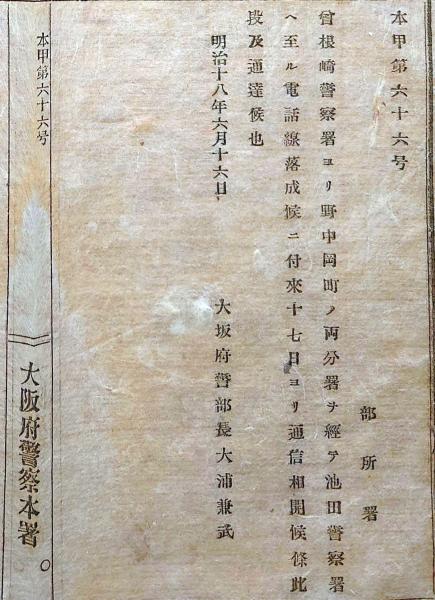 本甲第六十六号
部所署
曾根崎警察署ヨリ野中岡町ノ両分署ヲ經テ池田警察署
ヘ至ル電話線落成候ニ付來十七日ヨリ通信相開候條此
段及通達候也
明治十八年六月十六日
大坂府警部長大浦兼武
本甲第六十六号
大阪府警察本署